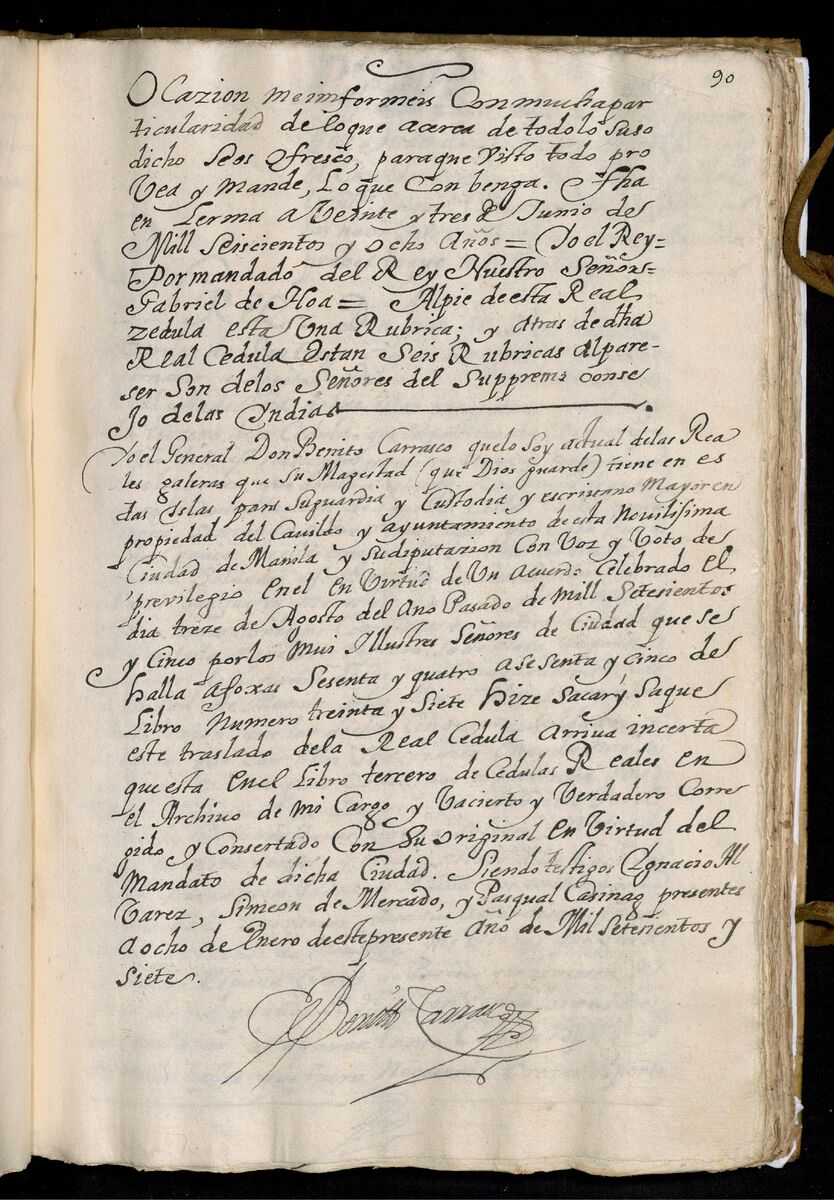 90
Ocazion meimformeis Conmuchapar
ticularidad de loque acerca de todolo suso
dicho se os ofresco, paraque Visto todo pro
Vea y Mande, Lo que Con benga. Fha
en Lerma a Veinte y tres de Junio de
Mill Seiscientos y ocho Años = Yo el Rey =
Por mandado del Rey Nuestro Señor =
Gabriel de Hoa = Alpie de esta Real
zedula esta Una Rubrica; y atras de dha
Real Cedula Estan Seis Rubricas Alpare-
ser Son delos Señores del Suppremo Conse
Jo delas Yndias
Yo el General Don Benito Carrasco quelo Soy actual delas Rea
les galeras que Su Magestad (que Dios guarde) tiene en es
tas Islas para Suguardia y Custodia y escrivano Mayor en
propiedad del Cavildo y ayuntamiento de esta Novilissima
Ciudad de Manila y sudiputazion Con Voz y Voto de
previlegio enel en Virtud de Un Acuerdo Celebrado El
dia treze de Agosto del Año Pasado de Mill Setesientos
y Cinco porlos Mui Illustres Señores de Ciudad que se
halla afoxas Sesenta y quatro asesenta y cinco de
Libro Numero treinta y Siete hize Sacar y Saque
este traslado dela Real Cedula Arriva incerta
que esta enel Libro tercero de Cedulas Reales en
el Archivo de mi Cargo y Vacierto y Verdadero Corre
gido y Consertado Con Su original en Virtud del
Mandato de dicha Ciudad. Siendo testigos Ygnacio Al
Varez, Simeon de Mercado, y Pasqual Casinag presentes
a ocho de Enero deestepresente Año de Mil Setesientos y
Siete.
Benito Carrasco